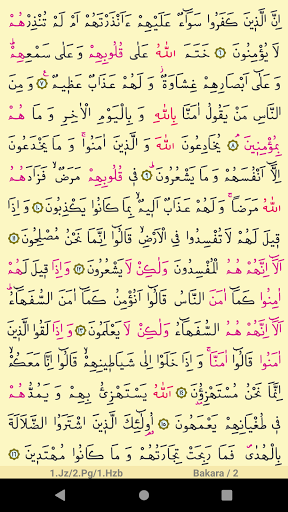 اِنَّ الَّذٖينَ كَفَرُوا سَوَٓاءٌ عَلَيْهِمْ ءَاَنْذَرْتَهُمْ اَمْ لَمْ تُنْذِرْهُمْ
لَا يُؤْمِنُونَ ﴿٦﴾ خَتَمَ اللّٰهُ عَلٰى قُلُوبِهِمْ وَ عَلٰى سَمْعِهِمْؕ
وَ عَلٰٓى اَبْصَارِهِمْ غِشَاوَةٌؗ وَ لَهُمْ عَذَابٌ عَظٖيمٌ ﴿٧﴾ وَ مِنَ
النَّاسِ مَنْ يَقُولُ اٰمَنَّا بِاللّٰهِ وَ بِالْيَوْمِ الْاٰخِرِ وَ مَا هُمْ
بِمُؤْمِنٖينَۘ ﴿٨﴾ يُخَادِعُونَ اللّٰهَ وَ الَّذٖينَ اٰمَنُواۚ وَ مَا يَخْدَعُونَ
اِلَّٓا اَنْفُسَهُمْ وَ مَا يَشْعُرُونَؕ ﴿٩﴾ فٖى قُلُوبِهِمْ مَرَضٌۙ فَزَادَهُمُ
اللّٰهُ مَرَضاًۚ وَ لَهُمْ عَذَابٌ اَلٖيمٌۙ بِمَا كَانُوا يَكْذِبُونَ ﴿١٠﴾ وَ اِذَا
قٖيلَ لَهُمْ لَا تُفْسِدُوا فِى الْاَرْضِۙ قَالُٓوا اِنَّمَا نَحْنُ مُصْلِحُونَ ﴿١١﴾
اَلَٓا اِنَّهُمْ هُمُ الْمُفْسِدُونَ وَلٰكِنْ لَا يَشْعُرُونَ ﴿١٢﴾ وَ اِذَا قٖيلَ لَهُمْ
اٰمِنُوا كَمَٓا اٰمَنَ النَّاسُ قَالُٓوا اَنُؤْمِنُ كَمَٓا اٰمَنَ السُّفَهَٓاءُؕ
اَلَٓا اِنَّهُمْ هُمُ السُّفَهَٓاءُ وَلٰكِنْ لَا يَعْلَمُونَ ﴿١٣﴾ وَ اِذَا لَقُوا الَّذٖينَ
اٰمَنُوا قَالُٓوا اٰمَنَّاۚ وَ اِذَا خَلَوْا اِلٰى شَيَاطٖينِهِمْۙ قَالُٓوا اِنَّا مَعَكُمْۙ
اِنَّمَا نَحْنُ مُسْتَهْزِؤُ۫نَ ﴿١٤﴾ اَللّٰهُ يَسْتَهْزِئُ بِهِمْ وَ يَمُدُّهُمْ
فٖى طُغْيَانِهِمْ يَعْمَهُونَ ﴿١٥﴾ اُو۬لٰٓئِكَ الَّذٖينَ اشْتَرَوُا الضَّلَالَةَ
بِالْهُدٰىࣕ فَمَا رَبِحَتْ تِجَارَتُهُمْ وَ مَا كَانُوا مُهْتَدٖينَ ﴿١٦﴾
1.Jz/2.Pg/1.Hzb Bakara / 2